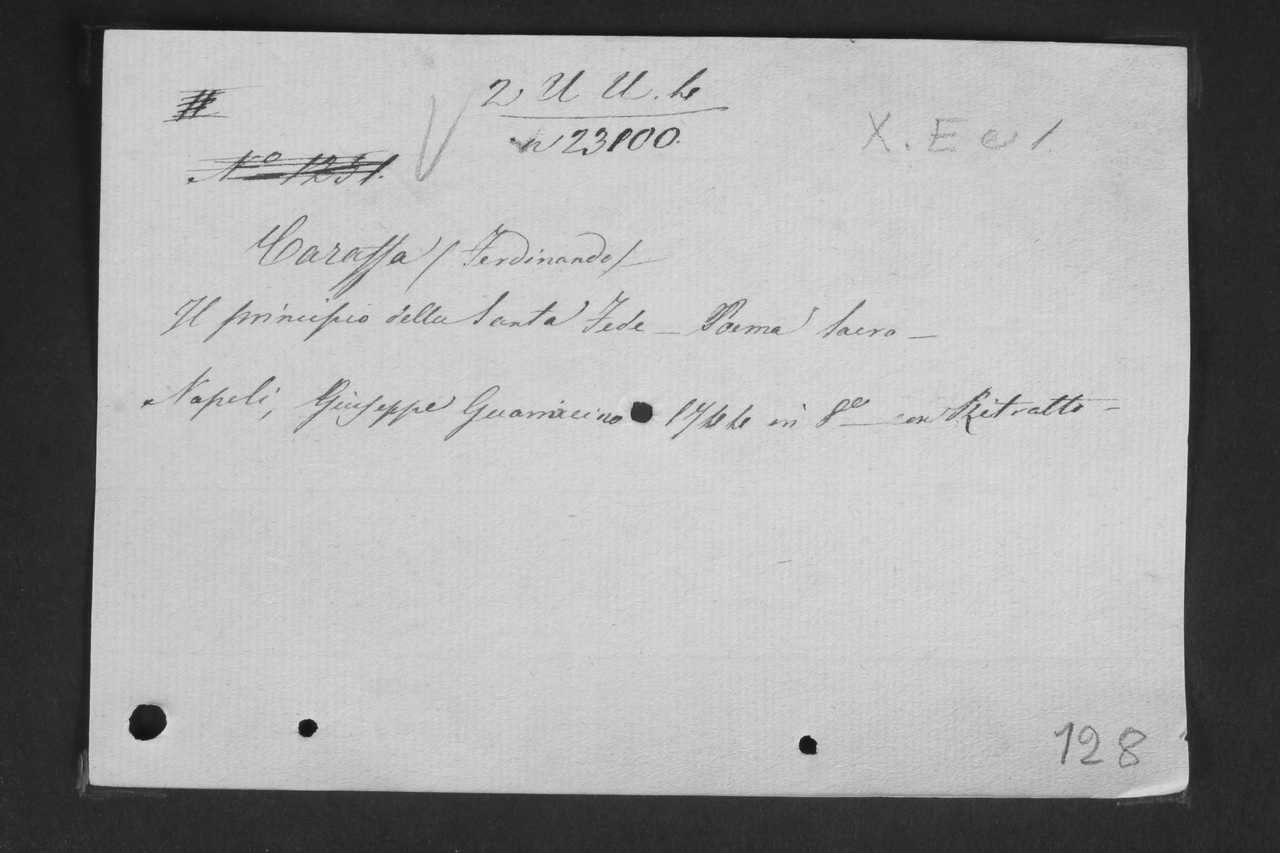 2 U U. 4
n 23100.
X. E e 1.
Nº 1251.
Caraffa (Ferdinando)
Il principio della Santa Fede - Poema Sacro -
Napoli, Giuseppe Guarracino 1744 in 8º con Ritratto -
128